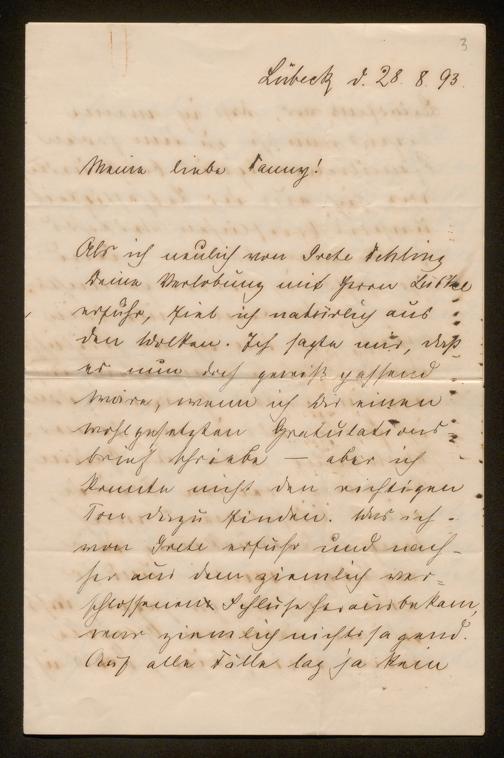 3
Lübeck d. 28. 8. 93.
Meine liebe Fanny!
Als ich neulich von Grete
Deine Verlobung mit Herrn
erfuhr, fiel ich natürlich aus
den Wolken. Ich sagte mir, daß
es nun doch gewiß passend
wäre, wenn ich Dir einen
wohlgesetzten Gratulations-
brief schriebe – aber ich
konnte nicht den richtigen
Ton dazu finden. Was ich
von Grete erfuhr und nach-
her aus dem ziemlich ver-
schlossenen herausbekam,
war ziemlich nichtssagend.
Auf alle Fälle lag ja kein